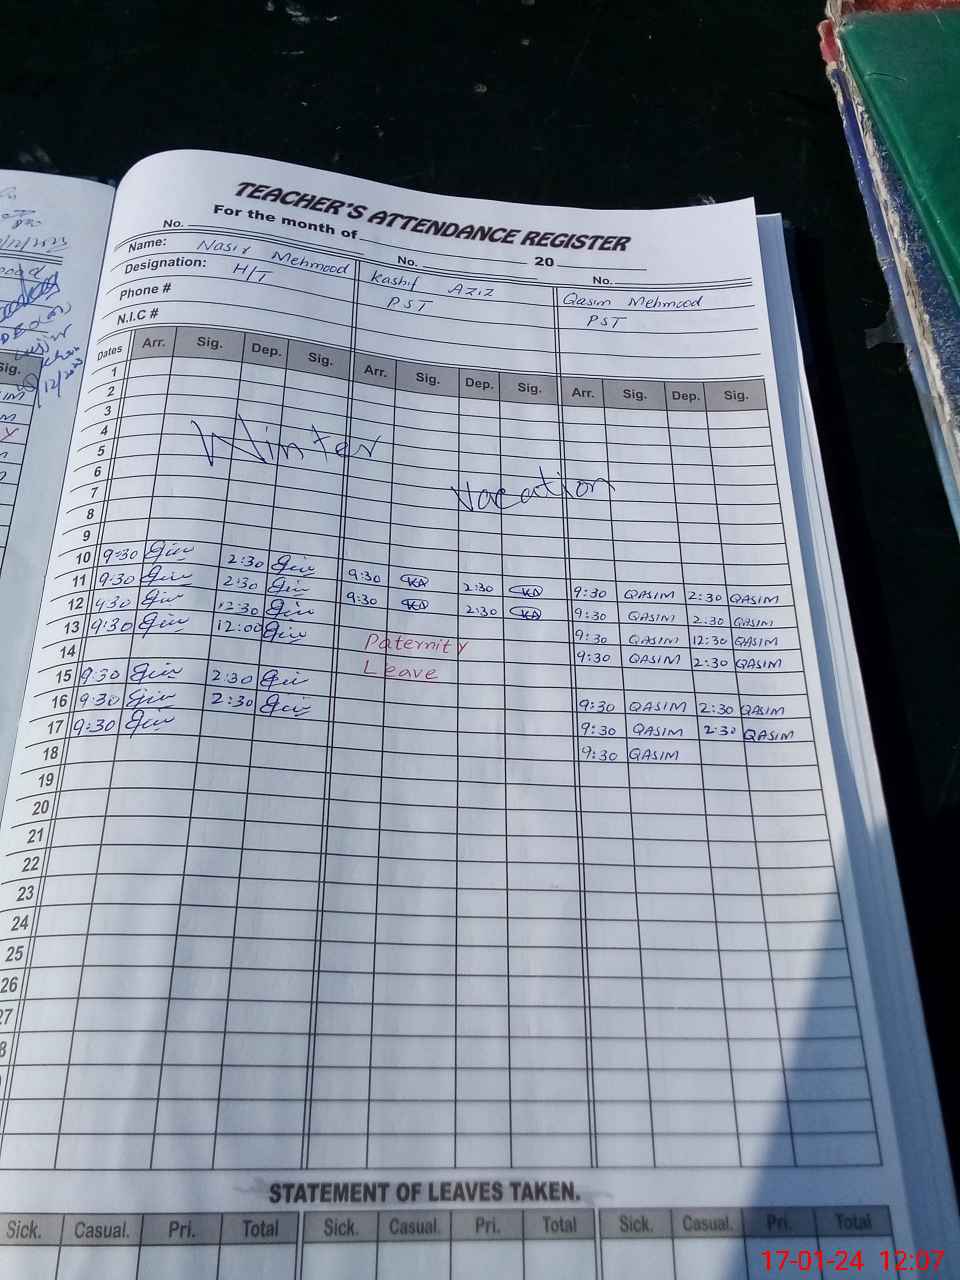 TEACHER'S ATTENDANCE REGISTER
For the month of 20
No. No. No.
Name: Nasir Mehmood Kashif Aziz Qasim Mehmood
Designation: H/T PST PST
Phone #
N.I.C #
Dates Arr. Sig. Dep. Sig. Arr. Sig. Dep. Sig. Arr. Sig. Dep. Sig.
1
2
3
4 Winter
5
6 Vacation
7
8
9
10 9:30 2:30 9:30 KA 2:30 KA 9:30 QASIM 2:30 QASIM
11 9:30 2:30 9:30 KA 2:30 KA 9:30 QASIM 2:30 QASIM
12 9:30 12:30 Paternity 9:30 QASIM 12:30 QASIM
13 9:30 12:00 Leave 9:30 QASIM 2:30 QASIM
14
15 9:30 2:30 9:30 QASIM 2:30 QASIM
16 9:30 2:30 9:30 QASIM 2:30 QASIM
17 9:30 9:30 QASIM
18
19
20
21
22
23
24
25
26
27
8
STATEMENT OF LEAVES TAKEN.
Sick. Casual. Pri. Total Sick. Casual. Pri. Total Sick. Casual. Pri. Total
17-01-24 12:07